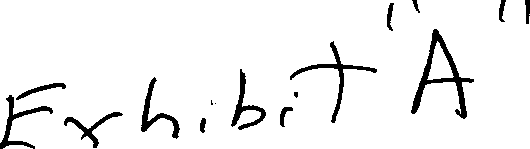 Exhibit "A"